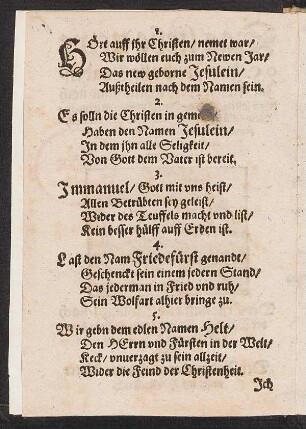 1.
HOrt auff ihr Christen/ nemet war/
Wir wöllen euch zum Newen Jar/
Das new geborne Jesulein/
Außtheilen nach dem Namen sein.
2.
Es solln die Christen in
Haben den Namen Jesulein/
In dem jhn alle Seligkeit/
Von Gott dem Vater ist bereit.
3.
Immanuel/ Gott mit vns heist/
Allen Betrübten sey geleist/
Wider des Teuffels macht vnd list/
Kein besser hülff auff Erden ist.
4.
Last den Nam Friedefürst genandt/
Geschenckt sein einem jedern Stand/
Das jederman in Fried vnd ruh/
Sein Wolfart alhier bringe zu.
5.
Wir gebn dem edlen Namen Helt/
Den HErrn vnd Fürsten in der Welt/
Keck/ vnuerzagt zu sein allzeit/
Wider die Feind der Christenheit.
Ich